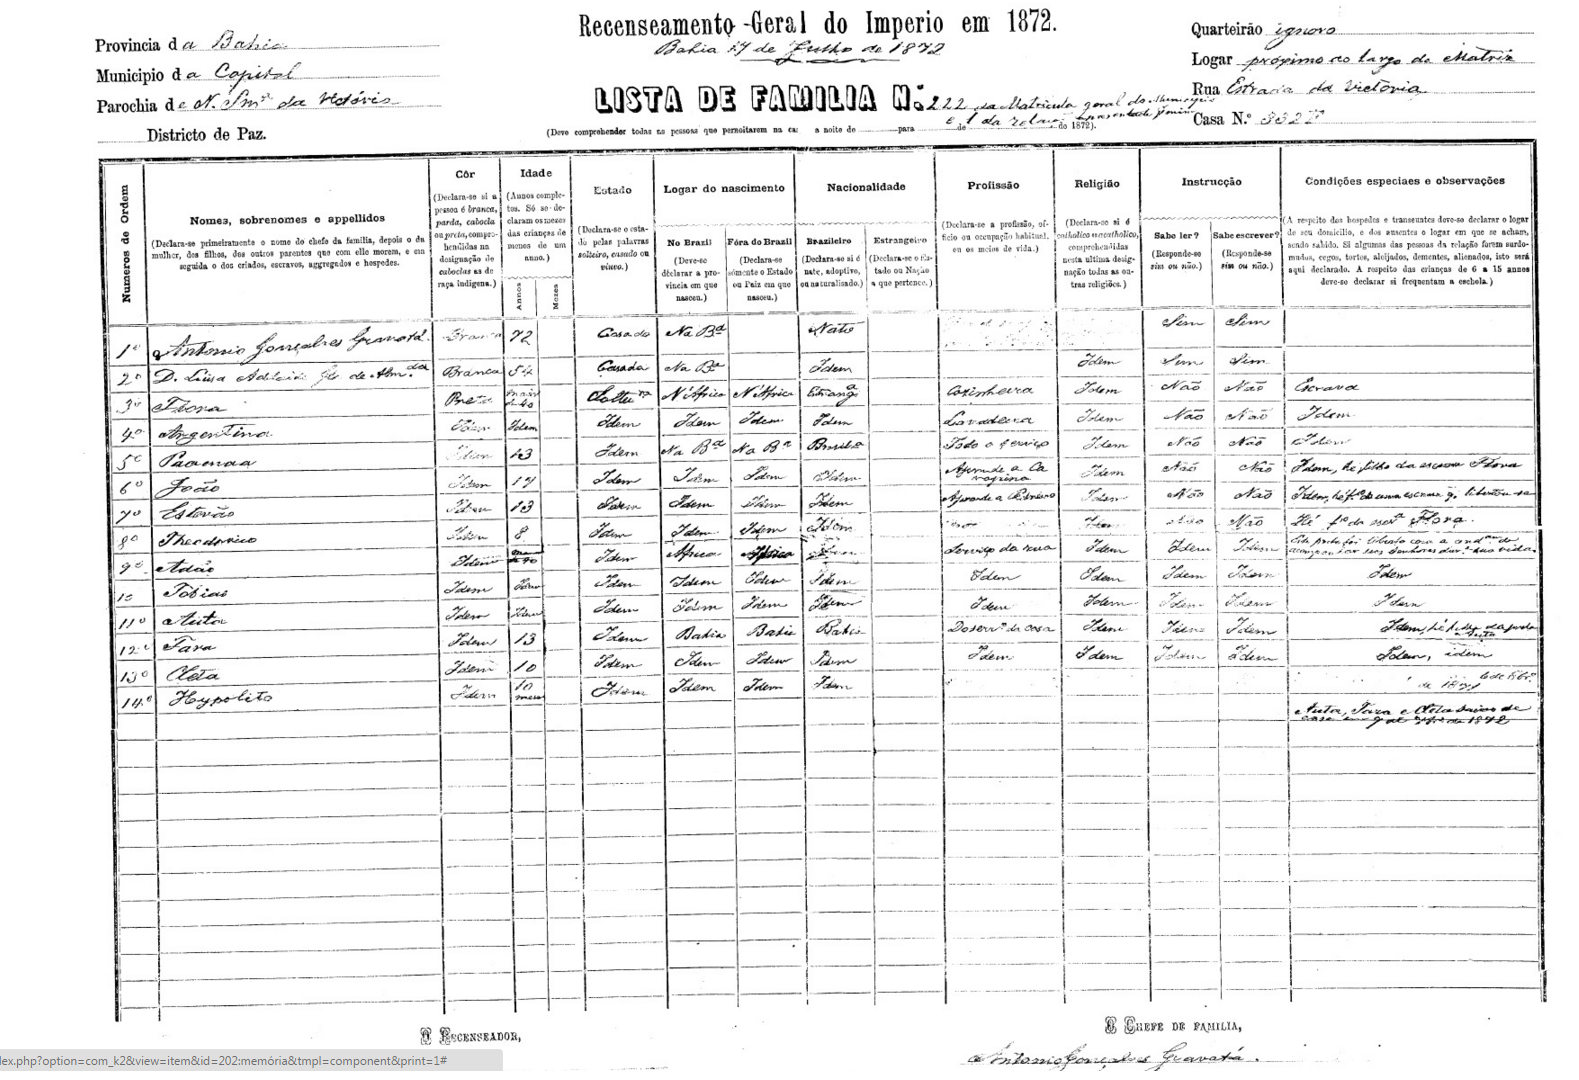 Recenseamento Geral do Imperio em 1872.
Bahia 17 de Julho de 1872
Provincia da Bahia
Municipio da Capital
Parochia de N. Snrª da Victória
Districto de Paz.
Quarteirão ignoro
Logar próximo ao largo da Matriz
Rua Estrada da Victoria
Casa N.º
LISTA DE FAMILIA N.º 222 da Matricula geral do Municipio
e 1 da relação apresentada
(Deve comprehender todas as pessoas que pernoitarem na casa a noite de para de de 1872).
Numeros de Ordem
Nomes, sobrenomes e appellidos
(Declara-se primeiramente o nome do chefe da familia, depois o da mulher, dos filhos, dos outros parentes que com elle morem, e em seguida o dos criados, escravos, aggregados e hospedes.)
Côr
(Declara-se si a pessoa é branca, parda, cabocla ou preta, comprehendidas na designação de caboclas as de raça indigena.)
Idade
(Annos completos. Só se declaram os mezes das crianças de menos de um anno.)
Annos
Mezes
Estado
(Declara-se o estado pelas palavras solteiro, casado ou viuvo.)
Logar do nascimento
No Brazil
(Deve-se declarar a provincia em que nasceu.)
Fóra do Brazil
(Declara-se sómente o Estado ou Paiz em que nasceu.)
Nacionalidade
Brazileiro
(Declara-se si é nato, adoptivo, ou naturalisado.)
Estrangeiro
(Declara-se o Estado ou Nação a que pertence.)
Profissão
(Declara-se a profissão, officio ou occupação habitual, ou os meios de vida.)
Religião
(Declara-se si é catholico ou acatholico, comprehendidas nesta ultima designação todas as outras religiões.)
Instrucção
Sabe ler?
(Responde-se sim ou não.)
Sabe escrever?
(Responde-se sim ou não.)
Condições especiaes e observações
(A respeito dos hospedes e transeuntes deve-se declarar o logar de seu domicilio, e dos ausentes o logar em que se acham, sendo sabido. Si algumas das pessoas da relação forem surdo-mudos, cegos, tortos, aleijados, dementes, alienados, isto será aqui declarado. A respeito das crianças de 6 a 15 annos deve-se declarar si frequentam a eschola.)
1º Antonio Gonçalves Gravatá Branca 72 Casado Na Bª Nato Sim Sim
2º D. Luisa Adelaide Branca 54 Casada Na Bª Idem Idem Sim Sim
3º Flora Preta mais de 40 Solteira N'Africa N'Africa Estrangª Cozinheira Idem Não Não Escrava
4º Argentina Idem Idem Idem Idem Idem Idem Lavadeira Idem Não Não Idem
5º Idem 13 Idem Na Bª Na Bª Todo o serviço Idem Não Não Idem
6º João Idem Idem Idem Idem Idem Aprende a Carapina Idem Não Não Idem, he filho da escrava Flora
7º Estevão Idem 13 Idem Idem Idem Idem Aprende a Idem Não Não Idem, he fº de uma escrava q. libertou-se
8º Theodorico Idem 8 Idem Idem Idem Idem Idem Não Não Hé fº da escrª Flora.
9º Adão Idem mais de 40 Idem Africa Africa Serviço da rua Idem Idem Idem Este preto foi liberto com a condam de acompanhar seus Senhores durª sua vida
10 Tobias Idem Idem Idem Idem Idem Idem Idem Idem Idem Idem Idem
11º Auta Idem Idem Idem Idem Idem Idem Idem Idem Idem Idem Idem
12º Fara Idem 13 Idem Bahia Bahia Bahia Do servº da casa Idem Idem Idem Idem,
13º Cleta Idem 10 Idem Idem Idem Idem Idem Idem Idem Idem Idem, idem
14º Hypolito Idem 10 meses Idem Idem Idem Idem de 1871
Auta, Fara e Cleta
de 1872
O RECENSEADOR,
O CHEFE DE FAMILIA,
Antonio Gonçalves Gravatá.
lex.php?option=com_k2&view=item&id=202:memória&tmpl=component&print=1#